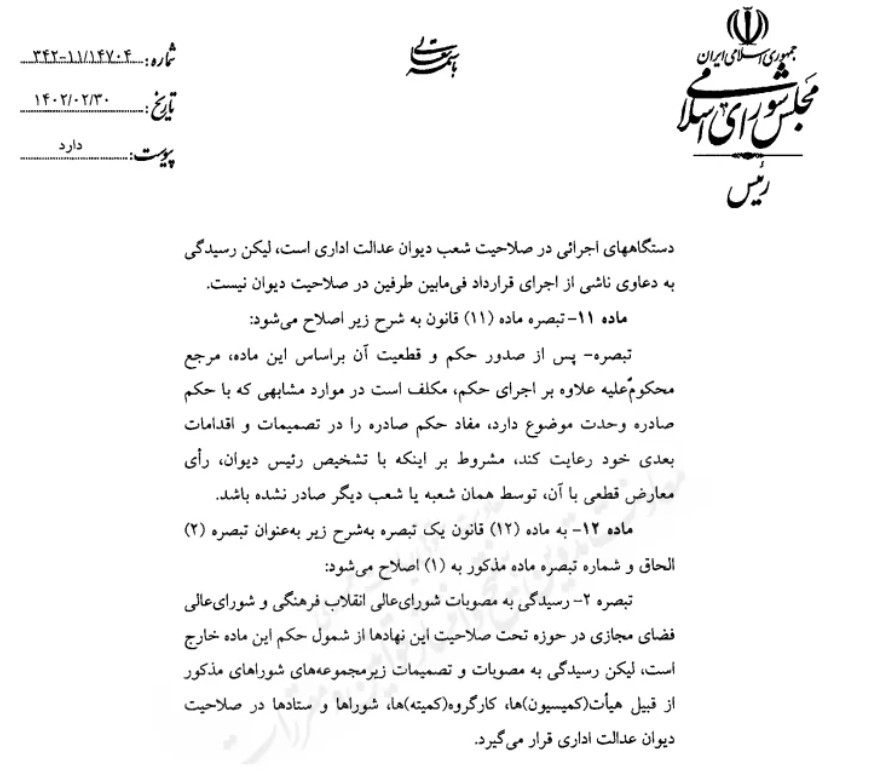 جمهوری اسلامی ایران
مجلس شورای اسلامی
رئیس
باسمه تعالی
شماره: ۳۴۲-۱۱/۱۴۷۰۴
تاریخ: ۱۴۰۲/۰۲/۳۰
پیوست: دارد
دستگاههای اجرائی در صلاحیت شعب دیوان عدالت اداری است، لیکن رسیدگی
به دعاوی ناشی از اجرای قرارداد فی‌مابین طرفین در صلاحیت دیوان نیست.
ماده ۱۱- تبصره ماده (۱۱) قانون به شرح زیر اصلاح می‌شود:
تبصره- پس از صدور حکم و قطعیت آن براساس این ماده، مرجع
محکومٌ‌علیه علاوه بر اجرای حکم، مکلف است در موارد مشابهی که با حکم
صادره وحدت موضوع دارد، مفاد حکم صادره را در تصمیمات و اقدامات
بعدی خود رعایت کند، مشروط بر اینکه با تشخیص رئیس دیوان، رأی
معارض قطعی با آن، توسط همان شعبه یا شعب دیگر صادر نشده باشد.
ماده ۱۲- به ماده (۱۲) قانون یک تبصره به‌شرح زیر به‌عنوان تبصره (۲)
الحاق و شماره تبصره ماده مذکور به (۱) اصلاح می‌شود:
تبصره ۲- رسیدگی به مصوبات شورای‌عالی انقلاب فرهنگی و شورای‌عالی
فضای مجازی در حوزه تحت صلاحیت این نهادها از شمول حکم این ماده خارج
است، لیکن رسیدگی به مصوبات و تصمیمات زیرمجموعه‌های شوراهای مذکور
از قبیل هیأت(کمیسیون)ها، کارگروه(کمیته)ها، شوراها و ستادها در صلاحیت
دیوان عدالت اداری قرار می‌گیرد.